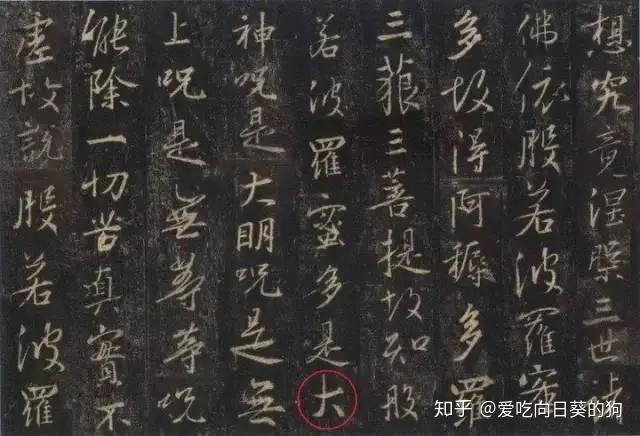 想究竟涅槃三世諸
佛依般若波羅蜜
多故得阿耨多羅
三藐三菩提故知般
若波羅蜜多是大
神呪是大明呪是無
上呪是無等等呪
能除一切苦真實不
虛故說般若波羅
知乎 @爱吃向日葵的狗